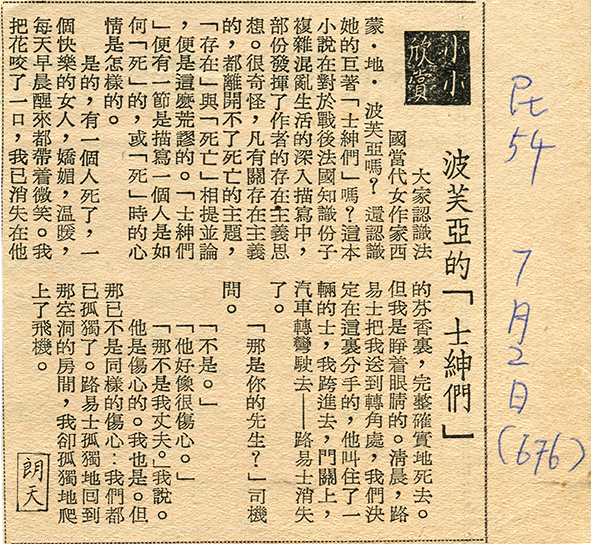 民54 7月2日 (676)
波芙亞的「士紳們」
小小
欣賞
大家認識法
國當代女作家西
蒙・地・波芙亞嗎?還認識
她的巨著「士紳們」嗎?這本
小說在對於戰後法國知識份子
複雜混亂生活的深入描寫中,
部份發揮了作者的存在主義思
想。很奇怪,凡有關存在主義
的,都離開不了死亡的主題,
「存在」與「死亡」相提並論
,便是這麼荒謬的。「士紳們
」便有一節是描寫一個人是如
何「死」的,或「死」時的心
情是怎樣的。
是的,有一個人死了,一
個快樂的女人,嬌媚,温暖,
每天早晨醒來都帶着微笑。我
把花咬了一口,我已消失在他
的芬香裏,完整確實地死去。
但我是睜着眼睛的。清晨,路
易士把我送到轉角處,我們決
定在這裏分手的,他叫住了一
輛的士,我跨進去,門關上,
汽車轉彎駛去——路易士消失
了。
「那是你的先生?」司機
問。
「不是。」
「他好像很傷心。」
「那不是我丈夫。」我說。
他是傷心的。我也是。但
那已不是同樣的傷心:我們都
已孤獨了。路易士孤獨地回到
那空洞的房間,我卻孤獨地爬
上了飛機。
朗天